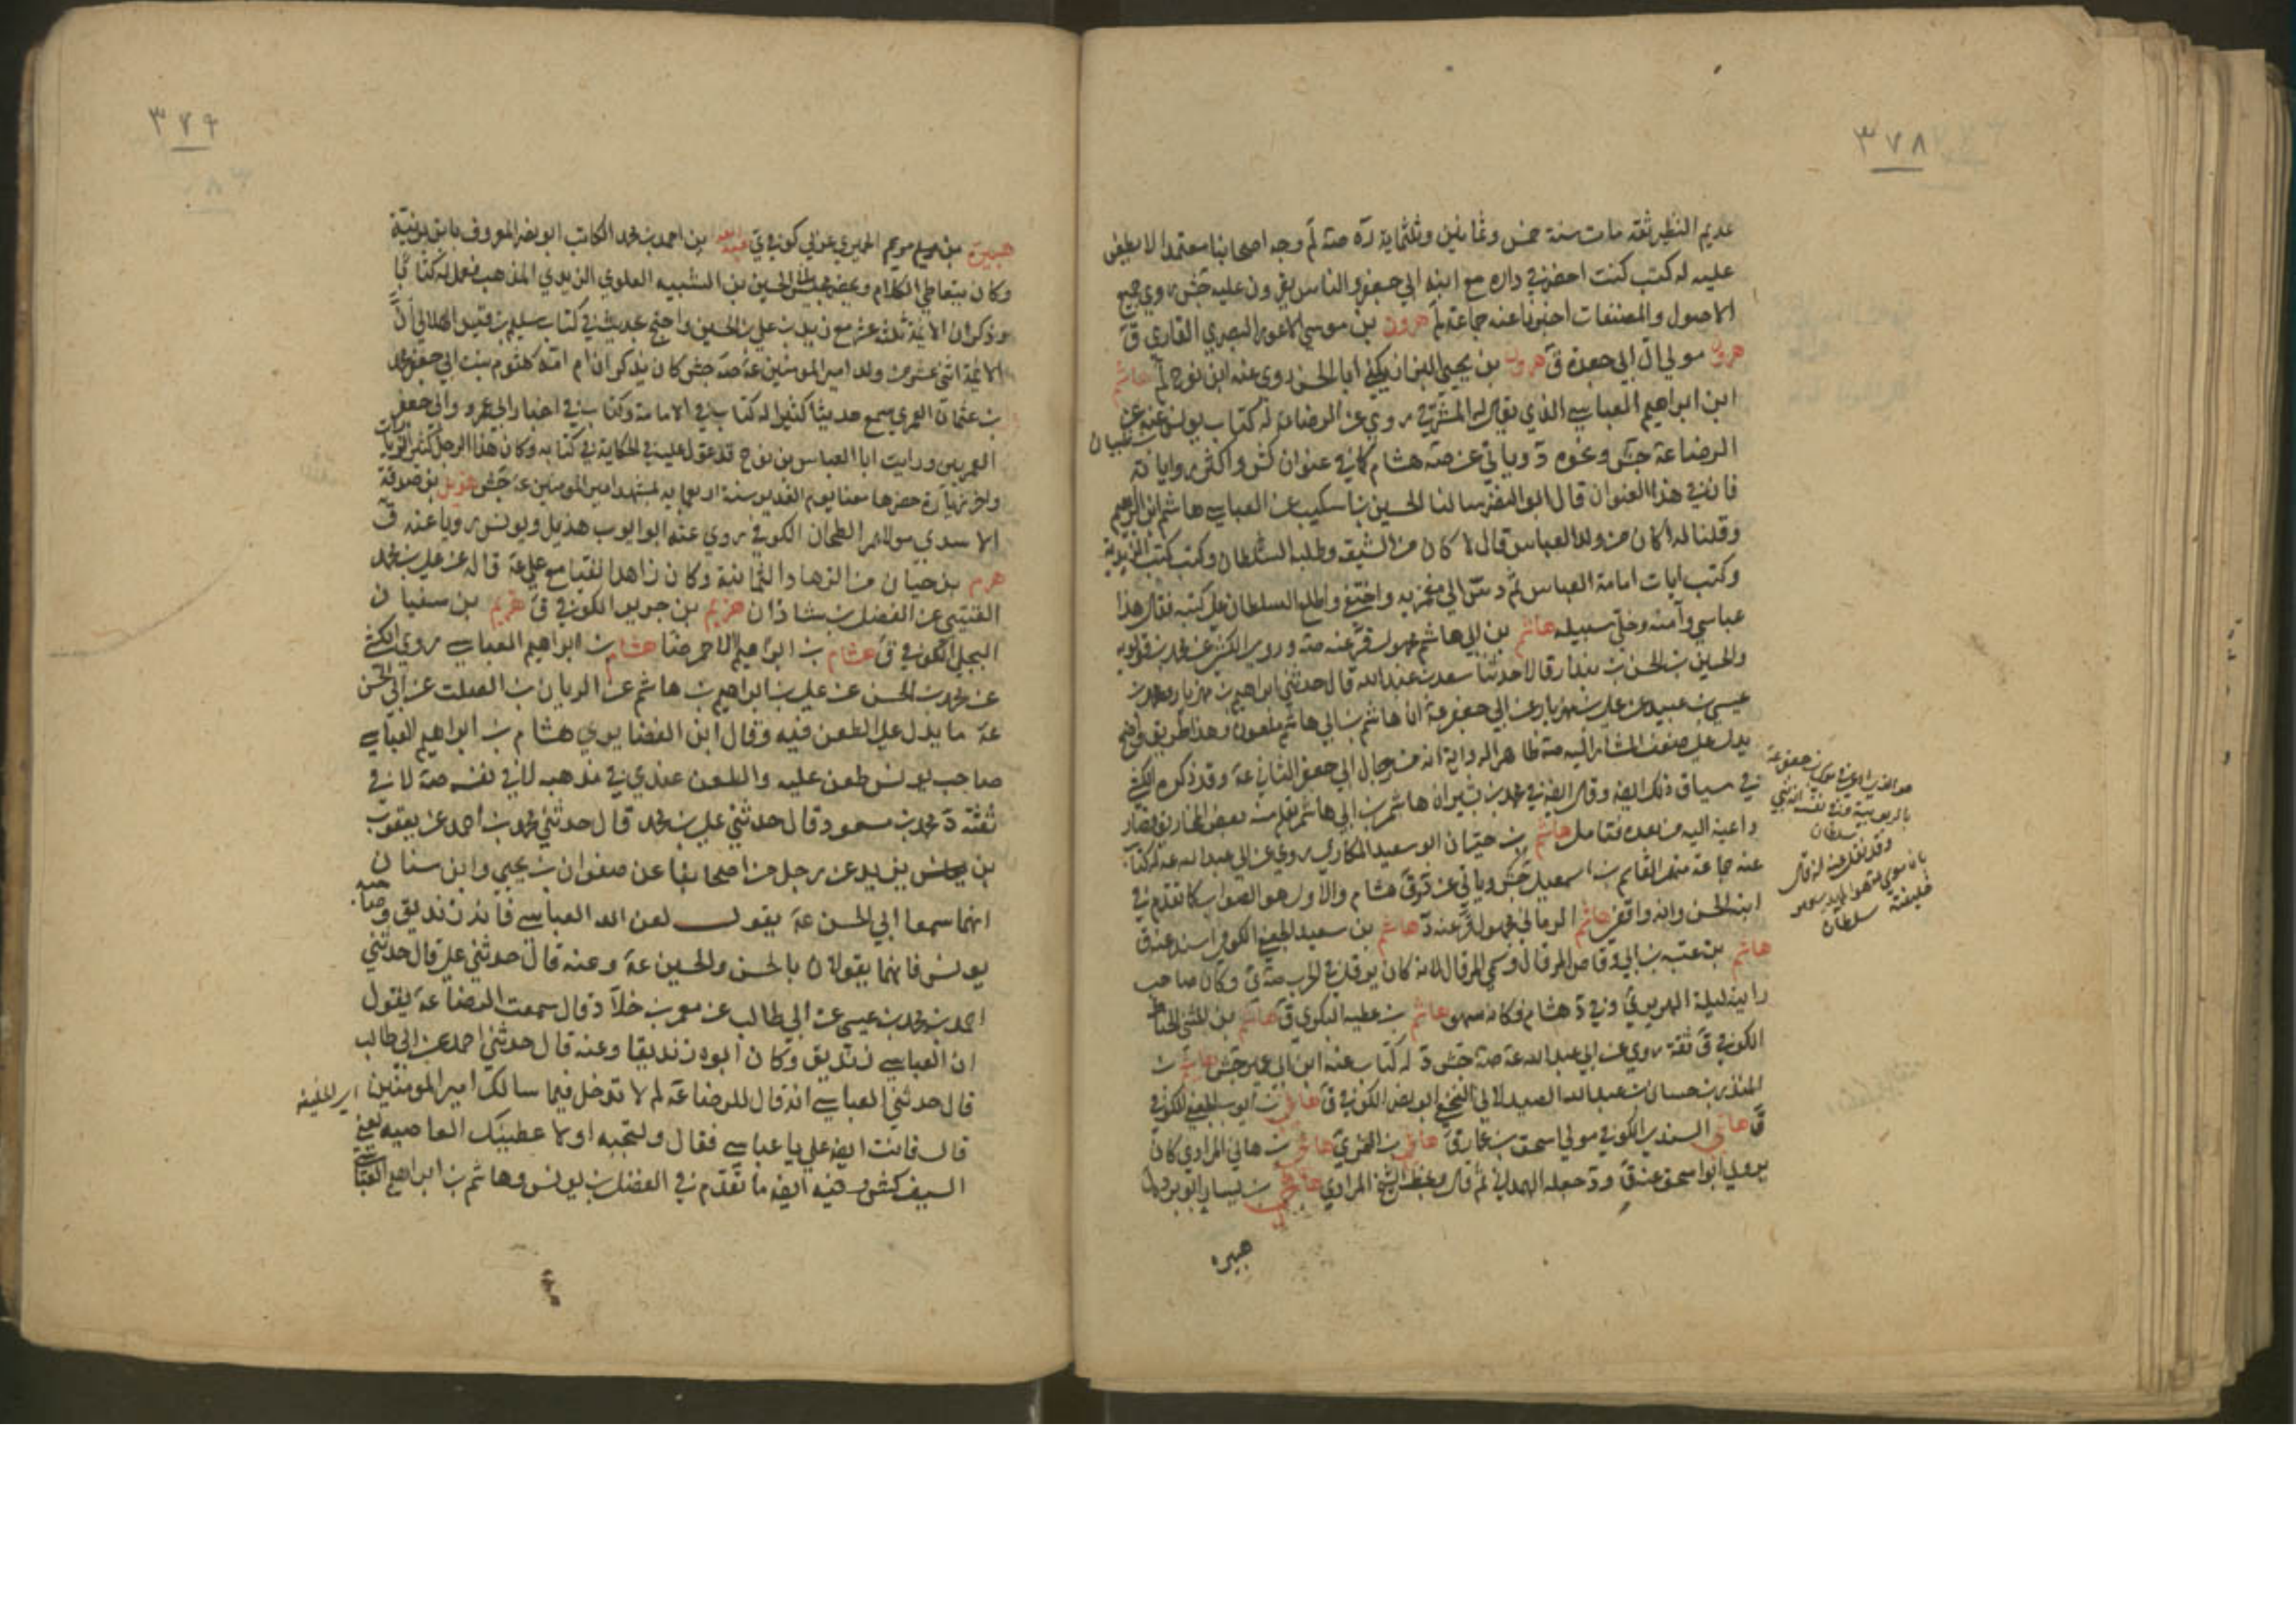 ٣٧٨
عديم النظير ثقة مات سنة خمس وثمانين وثلثماية ره صه لم وجه اصحابنا معتمد لا يطعن
عليه له كتب كنت احضر في داره مع ابنه ابي جعفر والناس يقرون عليه جش روي جميع
الاصول والمصنفات اخبرنا عنه جماعة لم هرون بن موسي الاعور البصري القاري ق
هرون مولي آل ابي جعدة ق هرون بن يحيي يكني ابا الحسن روي عنه ابن نوح لم هاشم
ابن ابراهيم العباسي الذي يقال له المشرقي روي عن الرضا له كتاب يرويه عنه
الرضا عة جش ونحوه د وياتي عن صه هشام كما في عنوان كش واكثر رواياته
فان في هذا العنوان قال ابو النضر سالنا الحسين بن اسكيب عن العباسي هاشم ابن ابراهيم
وقلنا له اكان من ولد العباس قال لا كان من الشيعة وطلبه السلطان وكتب كتب الزيدية
وكتب اثبات امامة العباس ثم دس الي من غمز به واختفي واطلع السلطان علي كتبه فقال هذا
عباسي وآمنه وخلي سبيله هاشم بن ابي هاشم مجهول قر عنه صه وروي الكشي عن محمد بن قولويه
والحسين بن الحسن بن بندار قالا حدثنا سعد بن عبد الله قال حدثني ابراهيم بن مهزيار ومحمد بن
عيسي بن عبيد عن علي بن مهزيار عن ابي جعفر عة ان هاشم بن ابي هاشم ملعون وهذا طريق واضح
يدل علي ضعف المشار اليه صه ظاهر الرواية انه من رجال ابي جعفر الثاني عة وقد ذكره الكشي
في سياق ذلك ايضه وقال ايضه في محمد بن بشير ان هاشم بن ابي هاشم تعلم منه بعض المخاريق فصار
داعية اليه من بعده فتامل هاشم بن حيان ابو سعيد المكاري روي عن ابي عبد الله عة له كتاب
عنه جماعة منهم القاسم بن اسمعيل جش وياتي عن ق هشام والاول هو الصواب كما تقدم في
ابنه الحسن وانه واقفي هاشم الرماني مجهول قر عنه د هاشم بن سعيد الجعفي الكوفي اسند عنه ق
هاشم بن عتبه بن ابي وقاص المرقال وسمي المرقال لانه كان يرقل في الحرب صه ي وكان صاحب
رايته ليلة الهرير ي وفي د هشام وكانه سهو هاشم بن عطيه البكري ق هاشم بن المثني الحناط
الكوفي ق ثقة روي عن ابي عبد الله عة صه جش د له كتاب عنه ابن ابي عمير جش هاشم بن
المنذر بن حسان بن عبد الله الصيدلاني النخعي ابو نصر الكوفي ق هاني بن ايوب الجعفي الكوفي
ق هاني السندي الكوفي مولي اسحق بن عمار ق هاني بن ي هاني بن هاني المرادي كان
يروي ابو اسحق عنه ق ود جعله الهمداني ثم قال وبخط الشيخ المرادي هاني بن نيار ابو برده ل
هبيره
وقد نقل عنه انه قال
خليفته سلطان
٣٧٩
هبيرة بن مريم الحميري عربي كوفي ي هبة الله بن احمد بن محمد الكاتب ابو نصر المعروف بابن برنية
وكان يتعاطي الكلام وبحضر مجلس الحسين بن الشبيه العلوي الزيدي المذهب فعمل له كتابا
وذكر ان الائمة ثلثة عشر مع زيد بن علي بن الحسين واحتج بحديث في كتاب سليم بن قيس الهلالي ان
الائمة اثني عشر من ولد امير المومنين عة صه جش كان يذكر ان ام امه كلثوم بنت ابي جعفر محمد
بن عثمان العمري سمع حديثا كثيرا له كتاب في الامامة وكتاب في اخبار ابي عمرو وابي جعفر
العمريين ورايت ابا العباس بن نوح قد عول عليه في الحكاية في كتابه وكان هذا الرجل كثير الزيارات
واخر زيارة حضرها معنا يوم الغدير سنة اربعمايه بمشهد امير المومنين عة جش هذيل بن صدقة
الاسدي مولاهم الطحان الكوفي روي عنه ابو ايوب هذيل ويونس رويا عنه ق
هرم بن حيان من الزهاد الثمانية وكان زاهدا تقيا مع علي عة قاله عن علي بن محمد
القتيبي عن الفضل بن شاذان هريم بن جرير الكوفي ق هريم بن سفيان
البجلي الكوفي ق هشام بن ابراهيم الاحمر ضا هشام بن ابراهيم العباسي روي الكشي
عن محمد بن الحسن عن علي بن ابراهيم بن هاشم عن الريان بن الصلت عن ابي الحسن
عة ما يدل علي الطعن فيه وقال ابن الغضايري هشام بن ابراهيم العباسي
صاحب يونس طعن عليه والطعن عندي في مذهبه لا في نفسه صه لا في
ثقته د محمد بن مسعود قال حدثني علي بن محمد قال حدثني محمد بن احمد عن يعقوب
بن يزيد عن رجل من اصحابنا عن صفوان بن يحيي وابن سنان
انهما سمعا ابي الحسن عة يقول لعن الله العباسي فانه زنديق وصاحبه
يونس فانهما يقولان بالحسن والحسين عة وعنه قال حدثني علي قال حدثني
احمد بن محمد بن عيسي عن ابي طالب عن معمر بن خلاد قال سمعت الرضا عة يقول
ان العباسي زنديق وكان ابوه زنديقا وعنه قال حدثني احمد عن ابي طالب
قال حدثني العباسي انه قال للرضا عة لم لا تدخل فيما سالك امير المومنين
قال فانت ايضه علي يا عباسي فقال ولتجبه اولا عطينك العاصيه يعني
السيف كش وفيه ايضه ما تقدم في الفضل بن يونس وهاشم بن ابراهيم العباسي